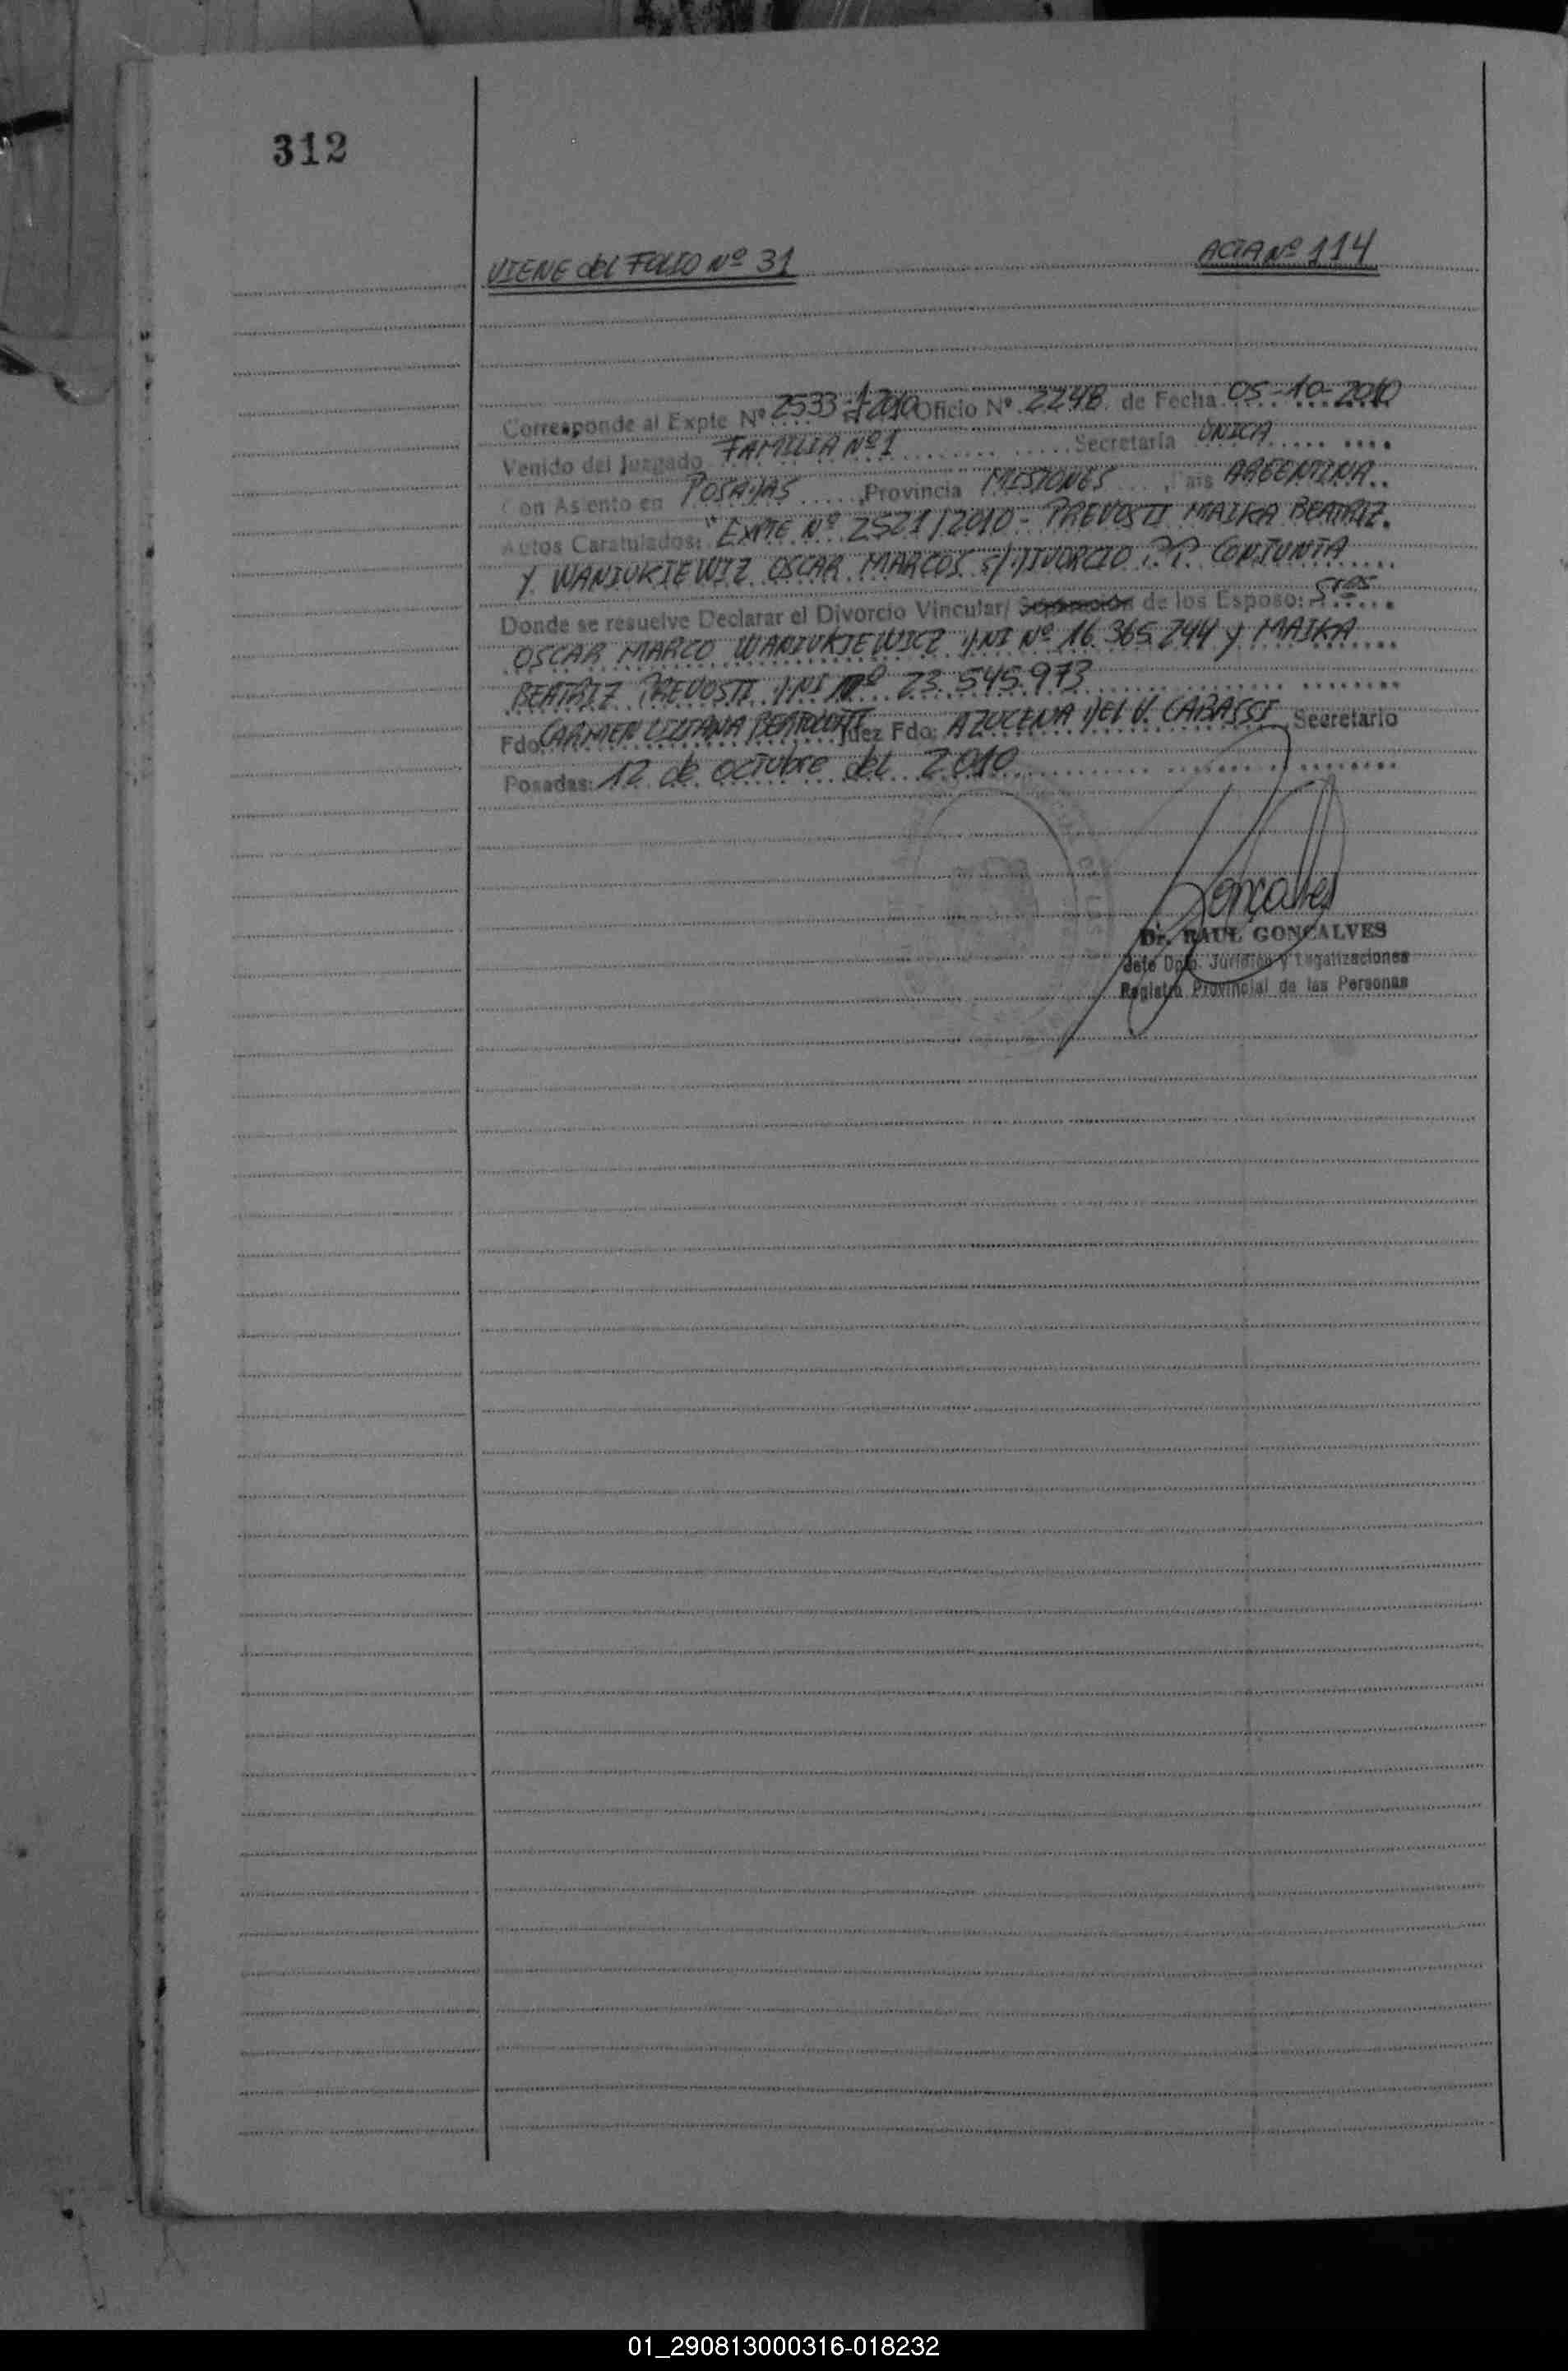 312
VIENE del FOLIO Nº 31 ACTA Nº 114
Corresponde al Expte Nº 2533-F-2010 Oficio Nº 2248 de Fecha 05-10-2010
Venido del Juzgado FAMILIA Nº 1 Secretaría ÚNICA
Con Asiento en POSADAS, Provincia MISIONES, País ARGENTINA
Autos Caratulados: "EXPTE Nº 2521/2010 - PREVOSTI MAIKA BEATRIZ
Y WANIUKIEWIZ OSCAR MARCOS S/ DIVORCIO P.P. CONJUNTA
Donde se resuelve Declarar el Divorcio Vincular/ Separación de los Esposo: Sres
OSCAR MARCO WANIUKIEWICZ DNI Nº 16.365.744 y MAIKA
BEATRIZ PREVOSTI DNI Nº 23.545.973
Fdo. CARMEN LILIANA BERTOLOTTI Juez Fdo: AZUCENA DEL V. CABASSI Secretario
Posadas: 12 de octubre del 2010
Goncalves
Dr. RAUL GONCALVES
Jefe Dpto. Jurídico y Legalizaciones
Registro Provincial de las Personas
01_290813000316-018232